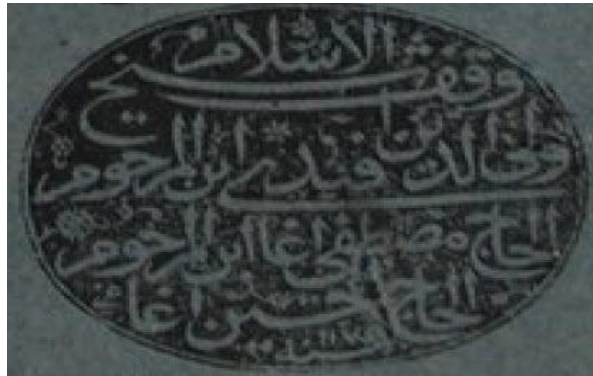 وقف شيخ الاسلام
ولي الدين افندى ابن المرحوم
الحاج مصطفى اغا ابن المرحوم
الحاج حسين اغا
سنة